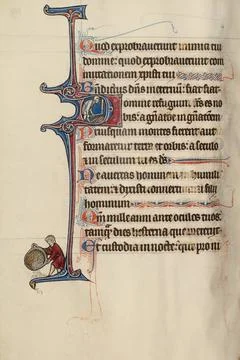 Quod exprobraverunt inimici tui
domine: quod exprobraverunt com
mutationem xpisti tui
Benedictus dns in eternum: fiat fiat
omine refugium
bis: a
riusquam montes fierent aut
formaretur terra et orbis: a seculo
in seculum
Ne avertas hominem in humili
tatem: et dixisti convertimini filii
hominum
Qm mille anni ante oculos tuos:
tamq dies hesterna que preterijt
Et custodia in nocte: que pro ni